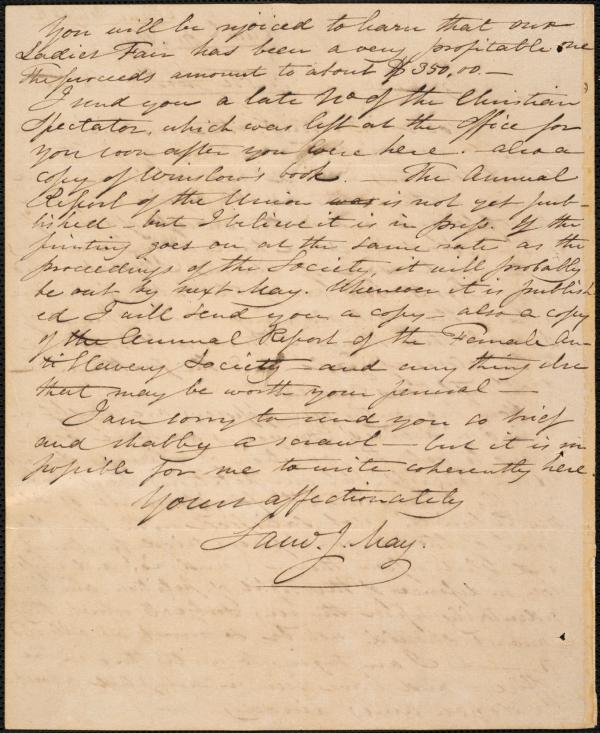 You will be rejoiced to learn that our
Ladies Fair has been a very profitable one
the proceeds amount to about $350.00.—
I send you a late No of the Christian
Spectator, which was left at the Office for
you soon after you were here. — also a
copy of Winslow's book. — The Annual
Report of the Union was is not yet pub-
lished — but I believe it is in press. If the
printing goes on at the same rate as the
proceedings of the Society, it will probably
be out by next May. Whenever it is publish
ed I will send you a copy — also a copy
of the Annual Report of the Female An-
ti Slavery Society — and any thing else
that may be worth your perusal —
I am sorry to send you so brief
and shabby a scrawl — but it is im
possible for me to write coherently here.
Yours affectionately
Saml. J. May.